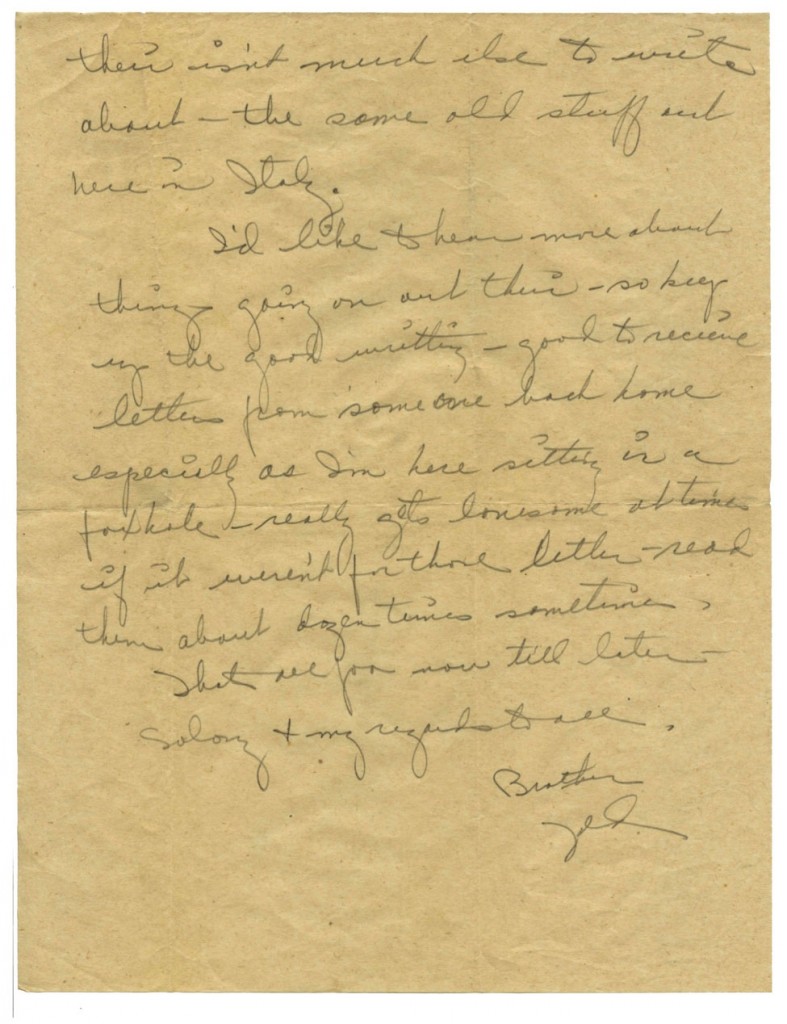 their isn't much else to write
about — the same old stuff out
here in Italy.
I'd like to hear more about
things going on out their — so keep
up the good writting — good to recieve
letters from someone back home
especially as I'm here sitting in a
foxhole — really gets lonesome at times
if it weren't for those letter — read
them about dozen times sometimes.
That all for now till later —
Solong & my regards to all.
Brother